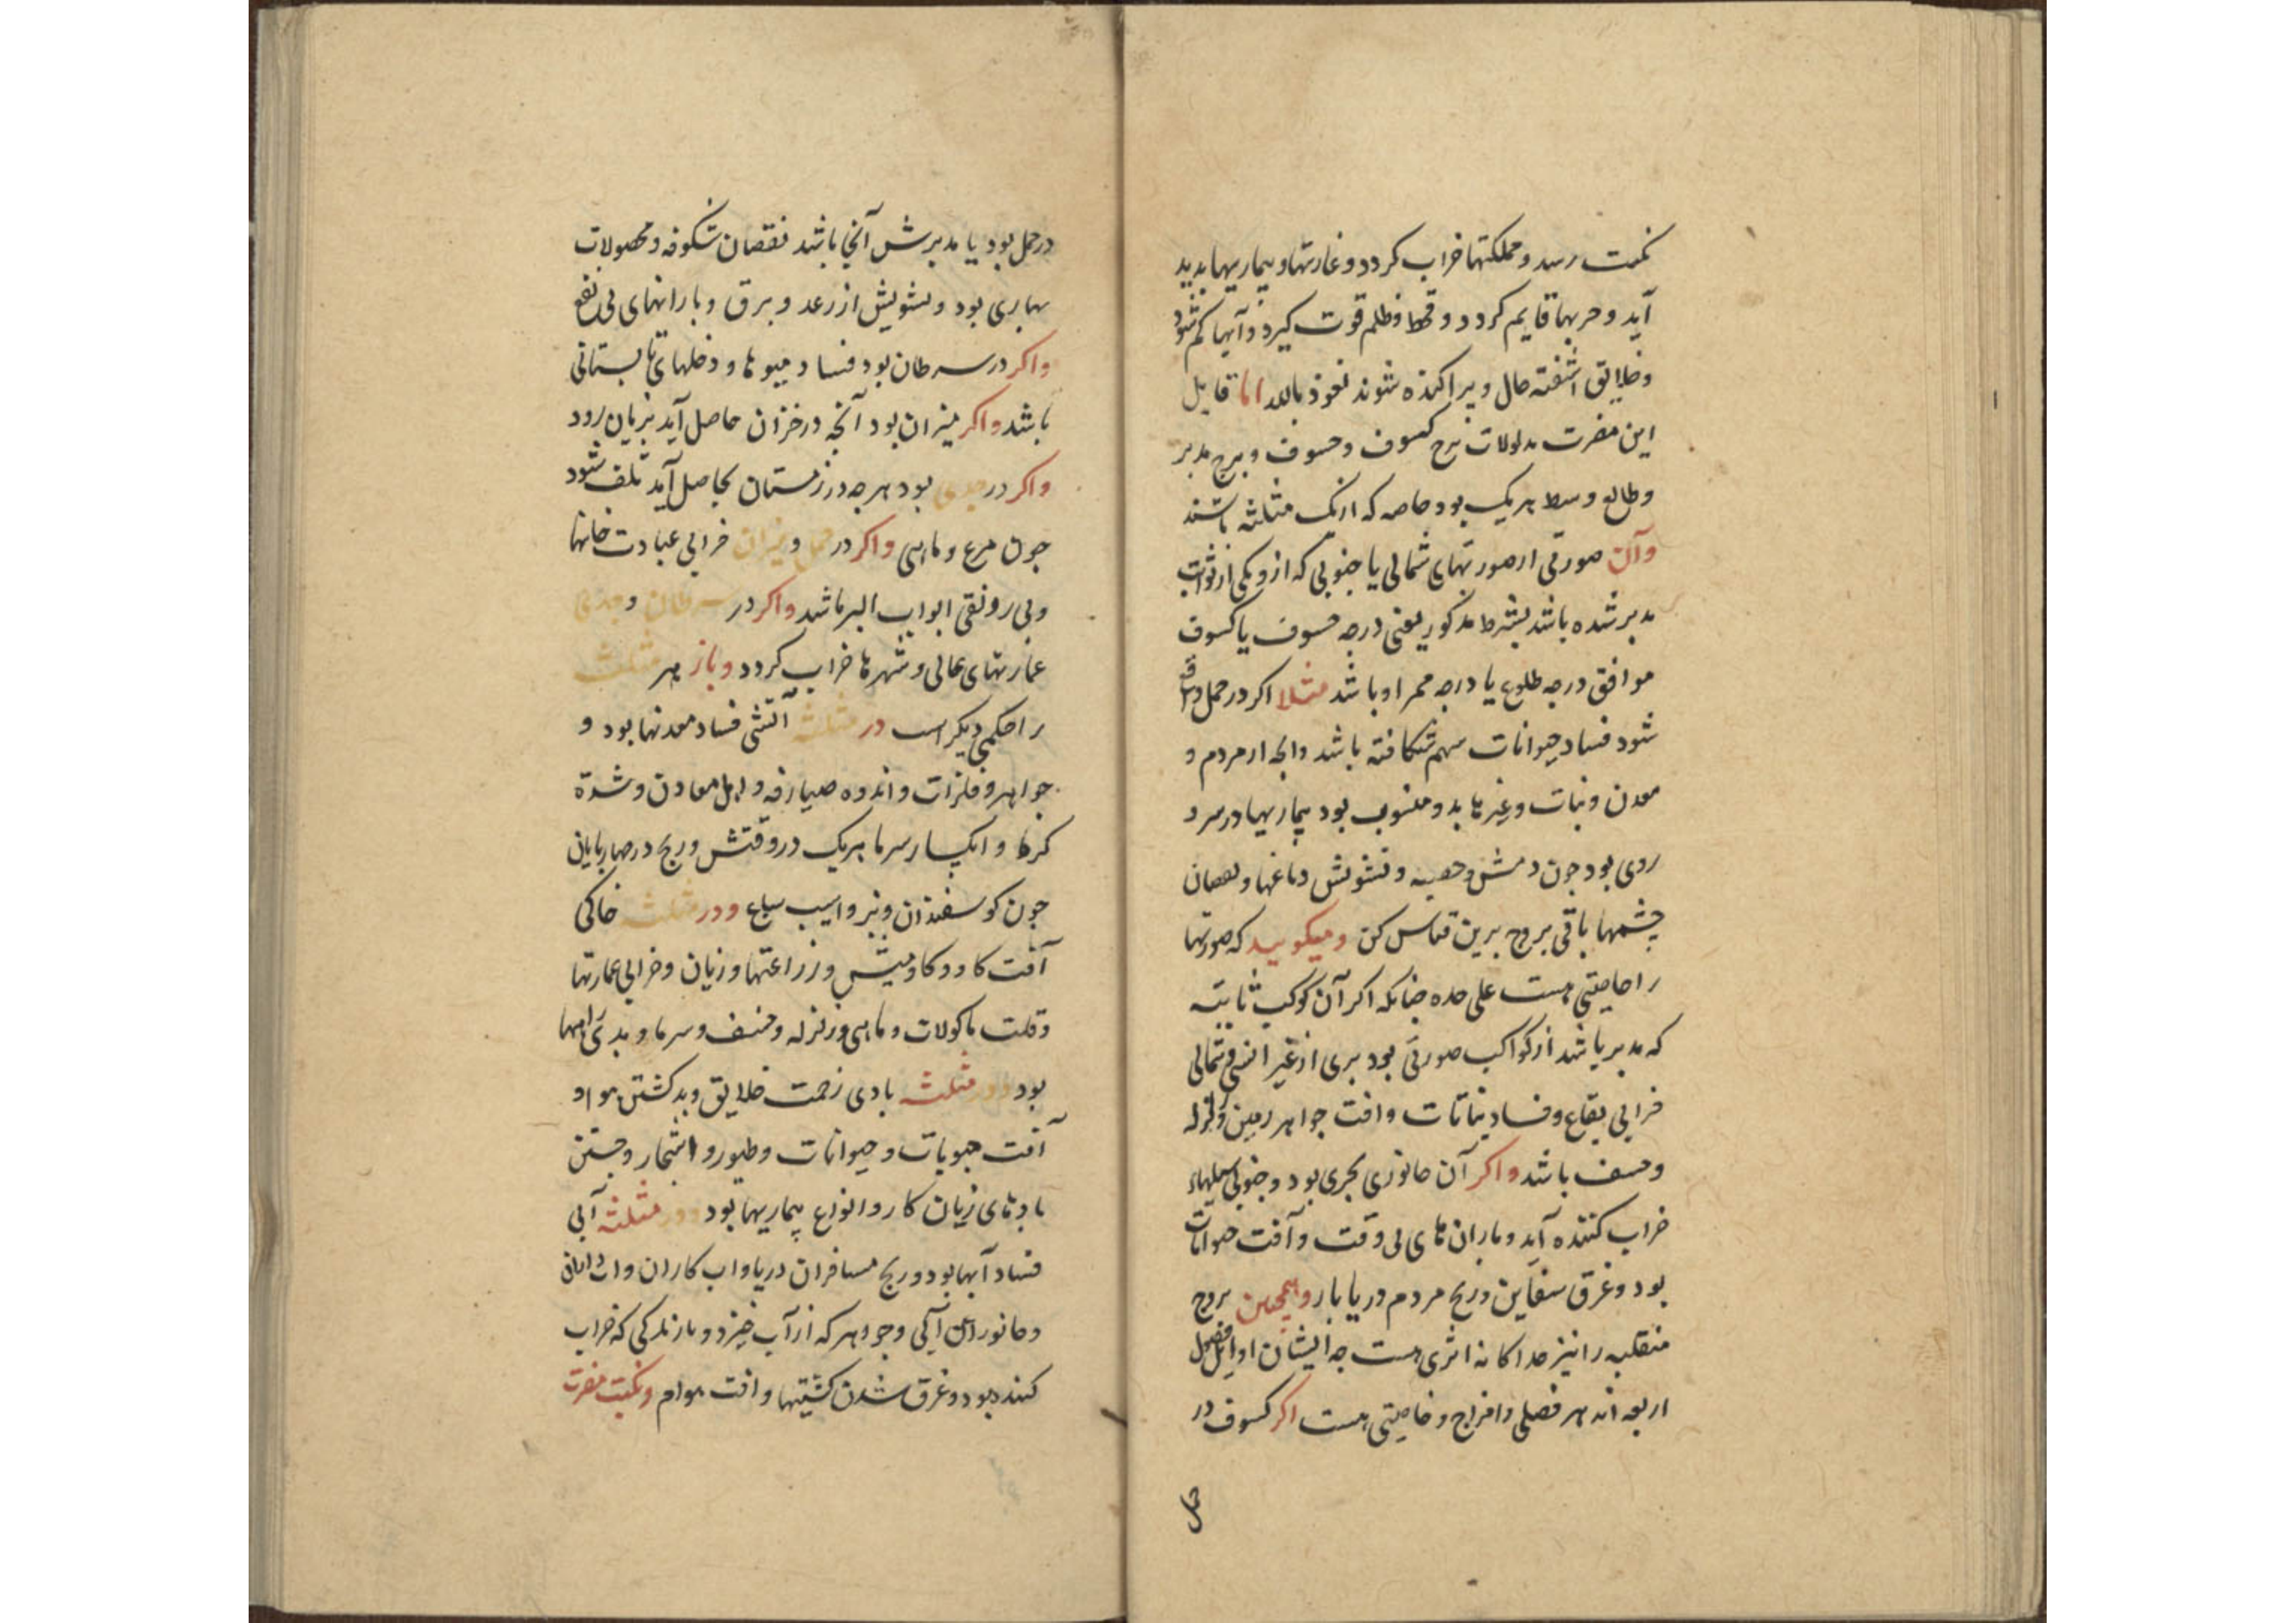 نکبت رسد و مملکتها خراب کردد و غارتها و بیماریها بدید
آید و حربها قایم کردد و قحط و ظلم قوت کیرد و آبها کم شود
و خلایق اشفته حال و پراکنده شوند نعوذ بالله اما قابل
این مضرت مدلولات برج کسوف و خسوف و برج مدبر
و طالع وسط هر یک بود خاصه که از یک مثلثه باشند
و آن صورتی از صورتهای شمالی یا جنوبی که ازو یکی از ثوابت
مدبر شده باشد بشرط مذکور یعنی درجه خسوف یا کسوف
موافق درجه طلوع یا درجه ممر او باشد مثلا اکر در حمل واقع
شود فساد حیوانات سم شکافته باشد و انچه از مردم و
معدن و نبات و غیرها بدو منسوب بود بیماریها در سر و
روی بود جون دمش و حصبه و تشویش دماغها و نقصان
چشمها باقی بروج برین قیاس کن و میکویند که صورتها
را خاصیتی هست علی حده چنانکه اکر آن کوکب ثابته
که مدبر باشد از کواکب صورتی بود بری از غیر انسی و شمالی
خرابی بقاع و فساد نباتات و افت جواهر زمین و زلزله
و خسف باشد و اکر آن جانوری بحری بود و جنوبی سیلهاء
خراب کننده آید و باران های بی وقت و آفت حیوانات
بود و غرق سفاین و رنج مردم دریا بار و همچنین بروج
منقلبه را نیز جداکانه اثری هست جه ایشان اوایل فصول
اربعه اند هر فصلی را مزاج و خاصیتی هست اکر کسوف در
حمل
در حمل بود یا مدبرش آنجا باشد نقصان شکوفه و محصولات
بهاری بود و تشویش از رعد و برق و بارانهای بی نفع
و اکر در سرطان بود فساد میوها و دخلهای تابستانی
باشد و اکر میزان بود آنچه در خزان حاصل آید بزیان رود
و اکر در جدی بود هر جه در زمستان بحاصل آید تلف شود
جون مرغ و ماهی و اکر در حمل و میزان خرابی عبادت خانها
و بی رونقی ابواب البر باشد و اکر در سرطان و جدی
عمارتهای عالی و شهرها خراب کردد و باز هر مثلثه
را حکمی دیکر است در مثلثه آتشی فساد معدنها بود و
جواهر و فلزات و اندوه صیارفه و اهل معادن و شدة
کرما و انکسار سرما هریک در وقتش و رنج در چهارپایان
جون کوسفندان و بز و اسیب سباع و در مثلثه خاکی
آفت کاو و کاومیش و زراعتها و زیان و خرابی عمارتها
و قلت ماکولات و ماهی و زلزله و خسف و سرما و بدی راهها
بود و در مثلثه بادی زحمت خلایق و بد کشتن هوا و
آفت حبوبات و حیوانات و طیور و اشجار و جستن
بادهای زیان کار و انواع بیماریها بود و در مثلثه آبی
فساد آبها بود و رنج مسافران دریا و اب کاران
و جانوران آبی و جواهر که از آب خیزد و بارندکی که خراب
کننده بود و غرق شدن کشتیها و افت هوام و نکبت مضرت